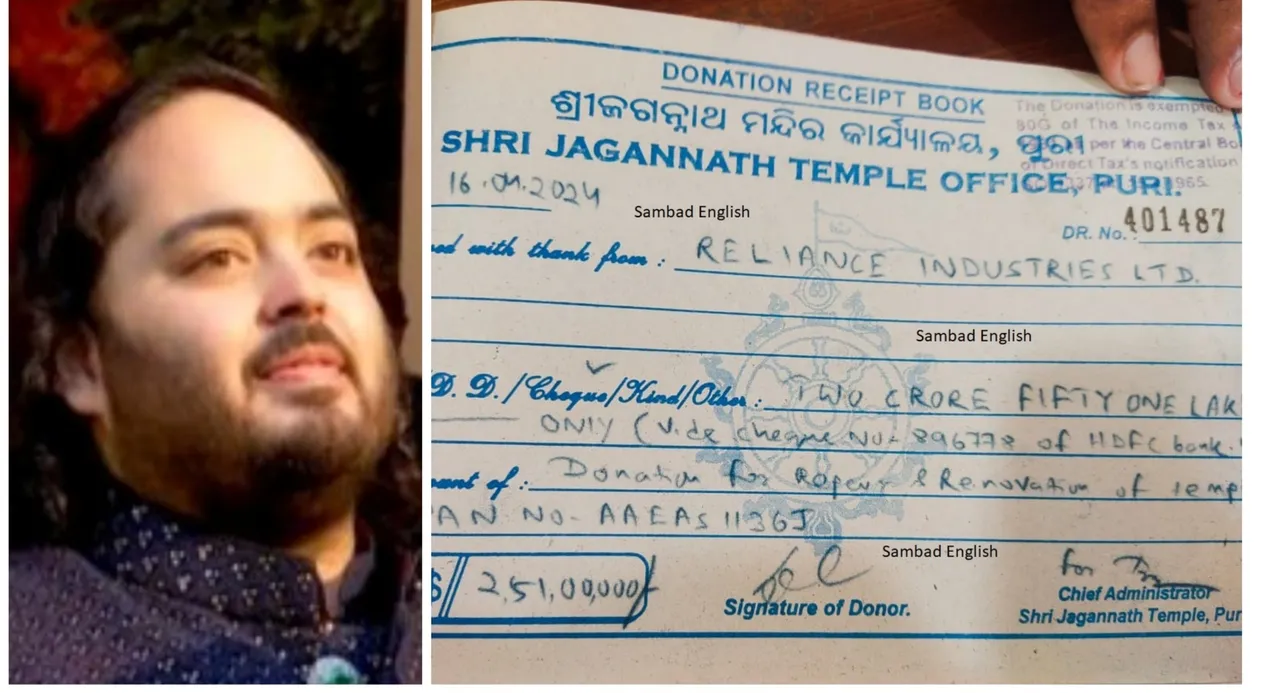 DONATION RECEIPT BOOK
ଶ୍ରୀଜଗନ୍ନାଥ ମନ୍ଦିର କାର୍ଯ୍ୟାଳୟ, ପୁରୀ
The Donation is exempted
80G of The Income Tax
per the Central Bo
of Direct Tax's notification
1965.
SHRI JAGANNATH TEMPLE OFFICE, PURI.
16.04.2024
Sambad English
DR. No. : 401487
ed with thank from : RELIANCE INDUSTRIES LTD.
Sambad English
D. D./Cheque/Kind/Other : TWO CRORE FIFTY ONE LAK
ONLY (Vide cheque No- 896778 of HDFC bank.
unt of : Donation for Repair & Renovation of temp
AN NO- AAEAS1136J
Sambad English
2,51,00,000/-
for
Signature of Donor.
Chief Administrator
Shri Jagannath Temple, Pur